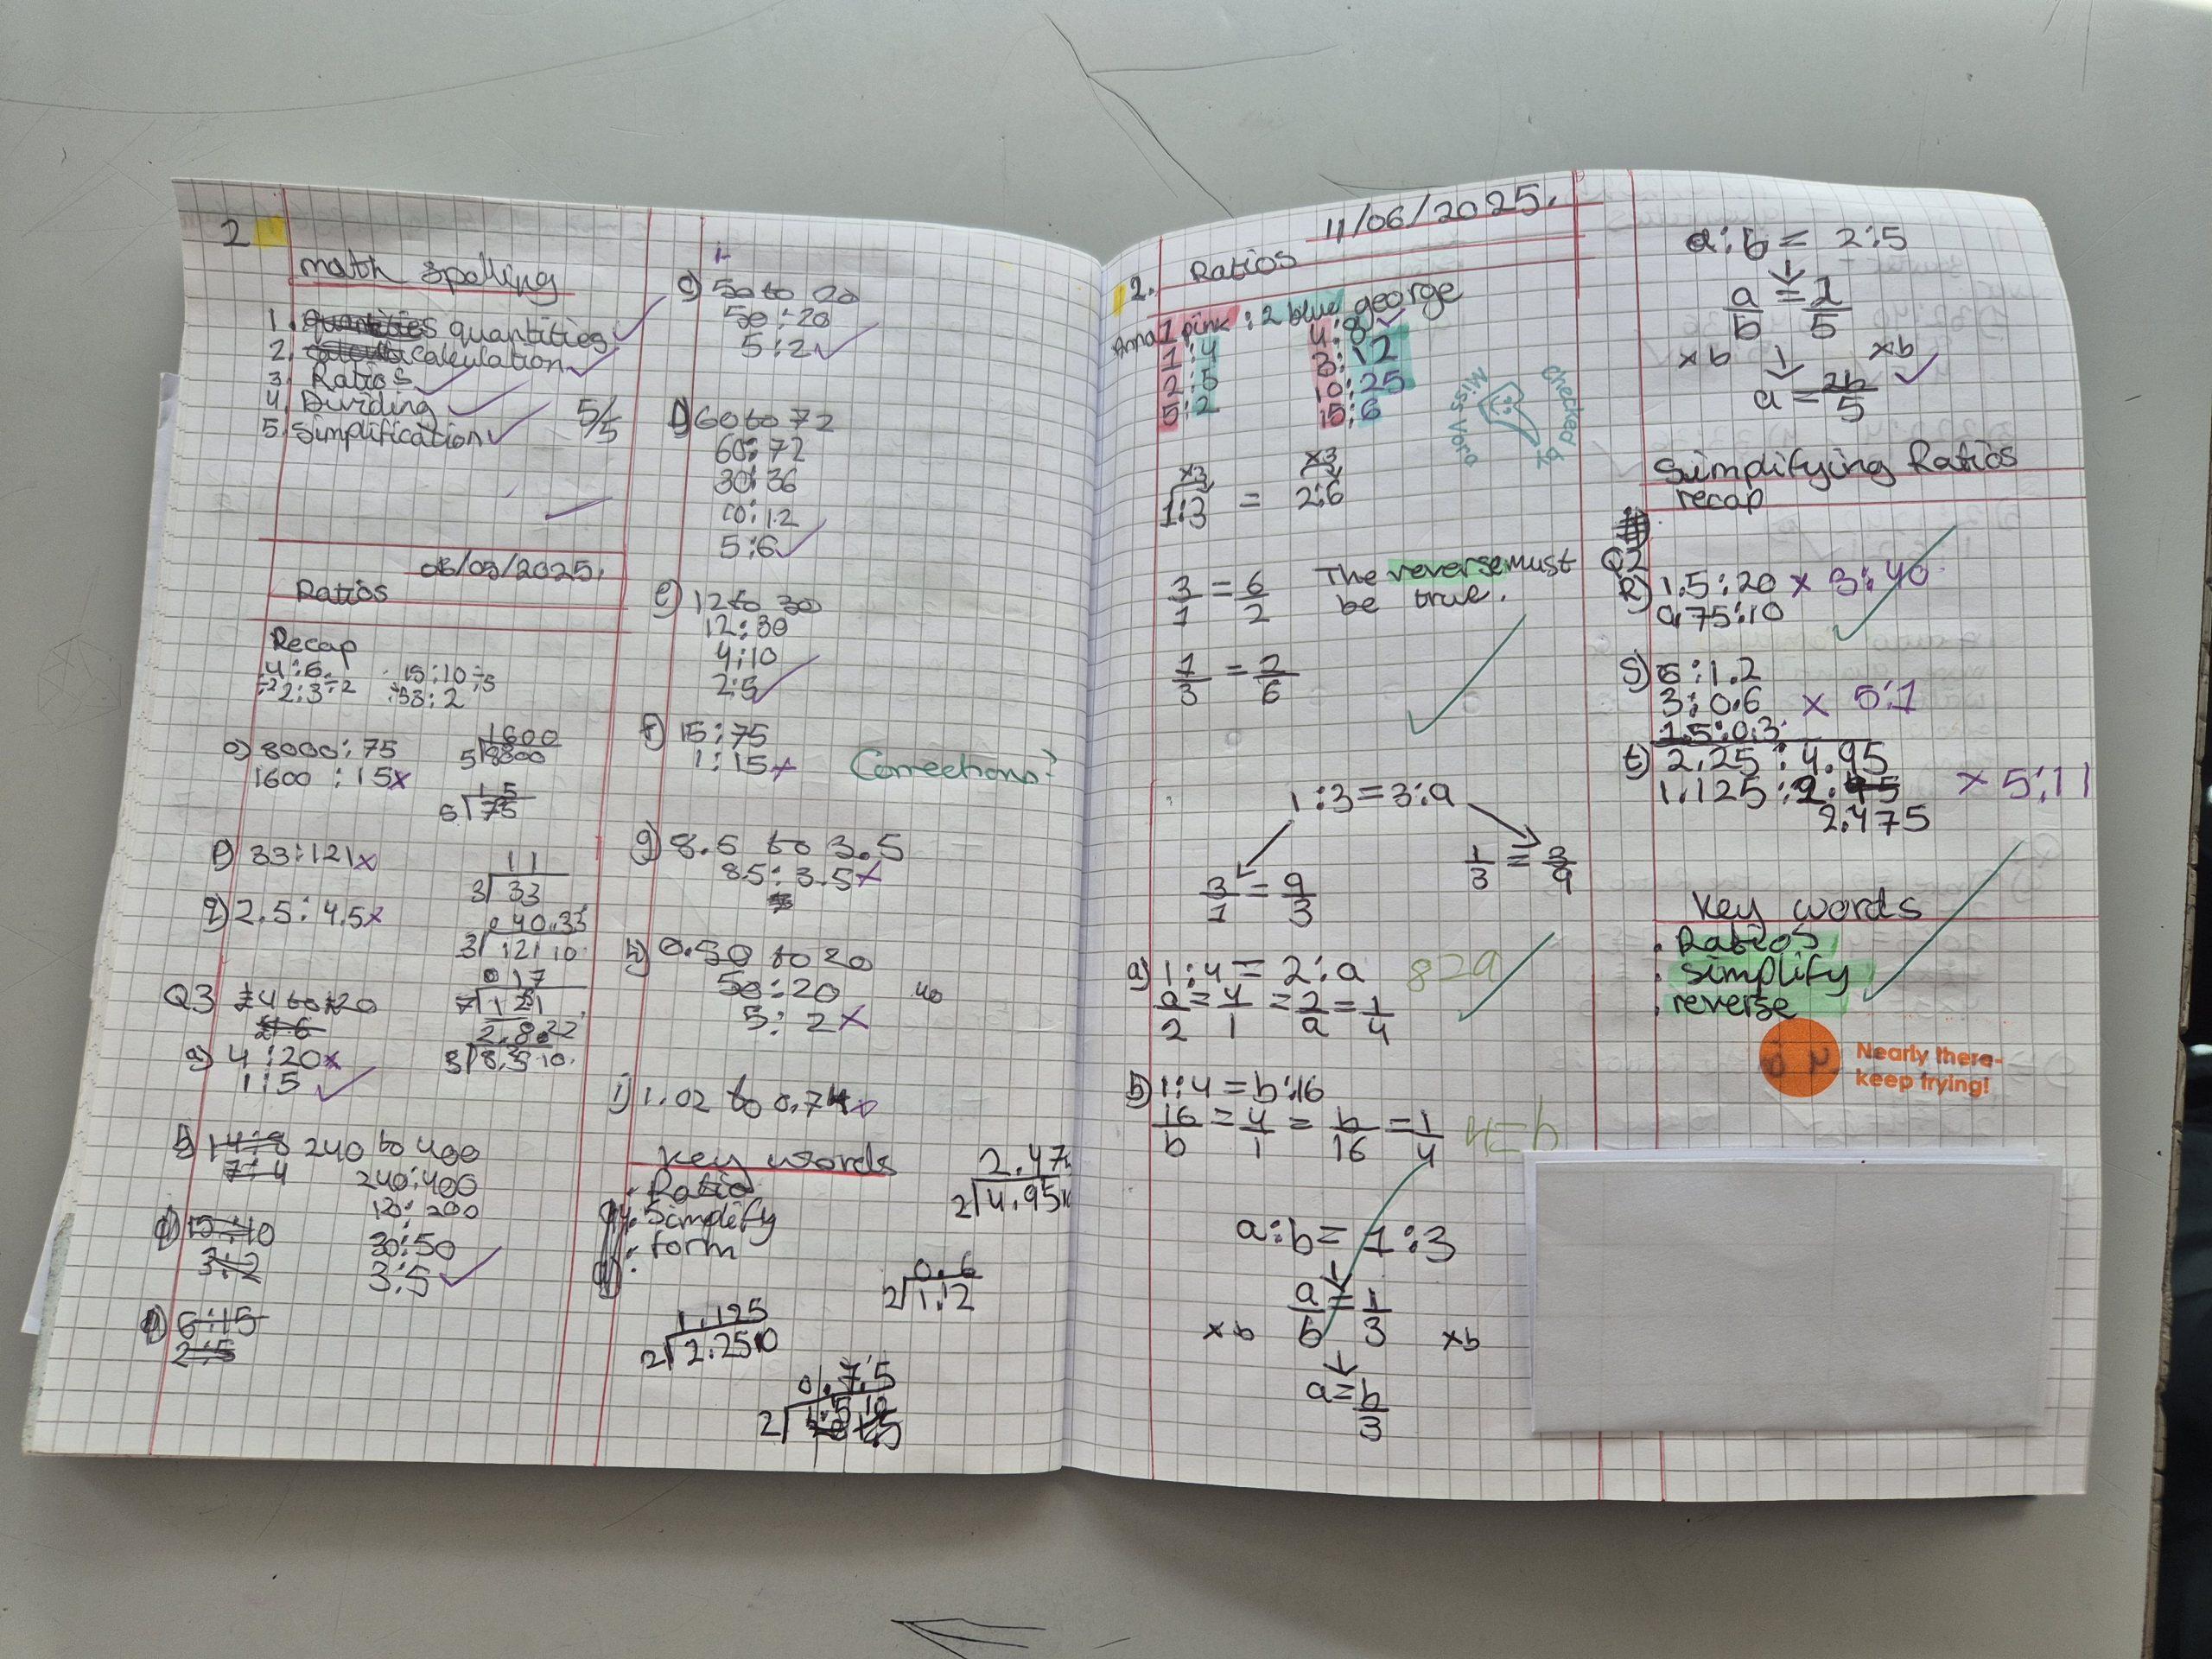 2
math spelling
1. quantities
2. calculation
3. Ratios
4. Dividing
5. Simplification
5/5
06/03/2025.
Ratios
Recap
4:6 15:10 ÷5
÷2 2:3 ÷2 ÷5 3:2
o) 8000:75
1600:15x
1600
5 8800
15
5 75
p) 33:121x
11
3 33
q) 2.5:4.5x
040.33
3 12110
017
7 121
Q3
a) 4:20x
1:5
2.8
3 8.510
b) 240 to 400
240:400
120:200
30:50
3:5
15:10
3:2
6:15
2:5
c) 50 to 20
50:20
5:2
d) 60 to 72
60:72
30:36
10:12
5:6
e) 12 to 30
12:30
4:10
2:5
f) 15:75
1:15x
Corrections?
g) 8.5 to 3.5
8.5:3.5x
h) 0.50 to 20
50:20 40
5:2x
i) 1.02 to 0.74
Key words
. Ratio
. Simplify
. form
2.47
2 4.95
0.6
2 1.12
1.125
2 2.2510
0.75
2
11/06/2025.
2. Ratios
Anna 1 pink : 2 blue george
1:4 4:8
2:5 3:12
5:2 10:25
15:6
checked by
Miss Vora
x3 x3
1:3 = 2:6
3/1 = 6/2 The reverse must
be true.
1/3 = 2/6
1:3 = 3:a
3/1 = a/3 1/3 = 3/a
a) 1:4 = 2:a 8=a
a/2 = 4/1 = 2/a = 1/4
b) 1:4 = b:16
16/b = 4/1 = b/16 = 1/4 4=b
a:b = 1:3
a/b = 1/3
xb xb
a = b/3
a:b = 2:5
a/b = 2/5
xb xb
a = 2b/5
Simplifying Ratios
recap
Q2
R) 1.5:20 x 3:40
0.75:10
S) 6:1.2
3:0.6 x 5:1
1.5:0.3
t) 2.25:4.95
1.125:2.475 x 5:11
2.475
Key words
. Ratios
. simplify
. reverse
Nearly there-
keep trying!